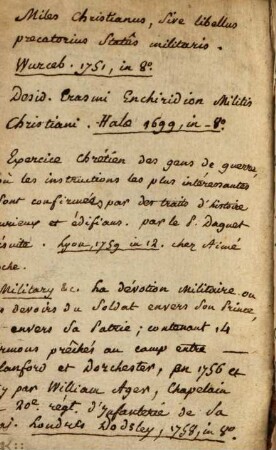 Miles Christianus, sive libellus
precatorius Status militaris.
Wurceb. 1751, in 8º.
Desid. Erasmi Enchiridion Militis
Christiani. Halæ 1699, in-8º.
Exercice Chrétien des gens de guerre,
où les instructions les plus intéressantes
sont confirmées par des traits d'histoire
curieux et édifians. par le P. Daguet
ésuite. Lyon, 1759 in 12. chez Aimé
oche.
Military &c. ha dévotion Militaire ou
s devoirs du Soldat envers son Prince,
envers sa Patrie; contenant 14
ermons prêchés au camp entre
lanford et Dorchester, en 1756 et
7 par William Agar, Chapelain
20e. régt. d'Infanterie de Sa
aj. Londres Dodsley, 1758, in 8º.